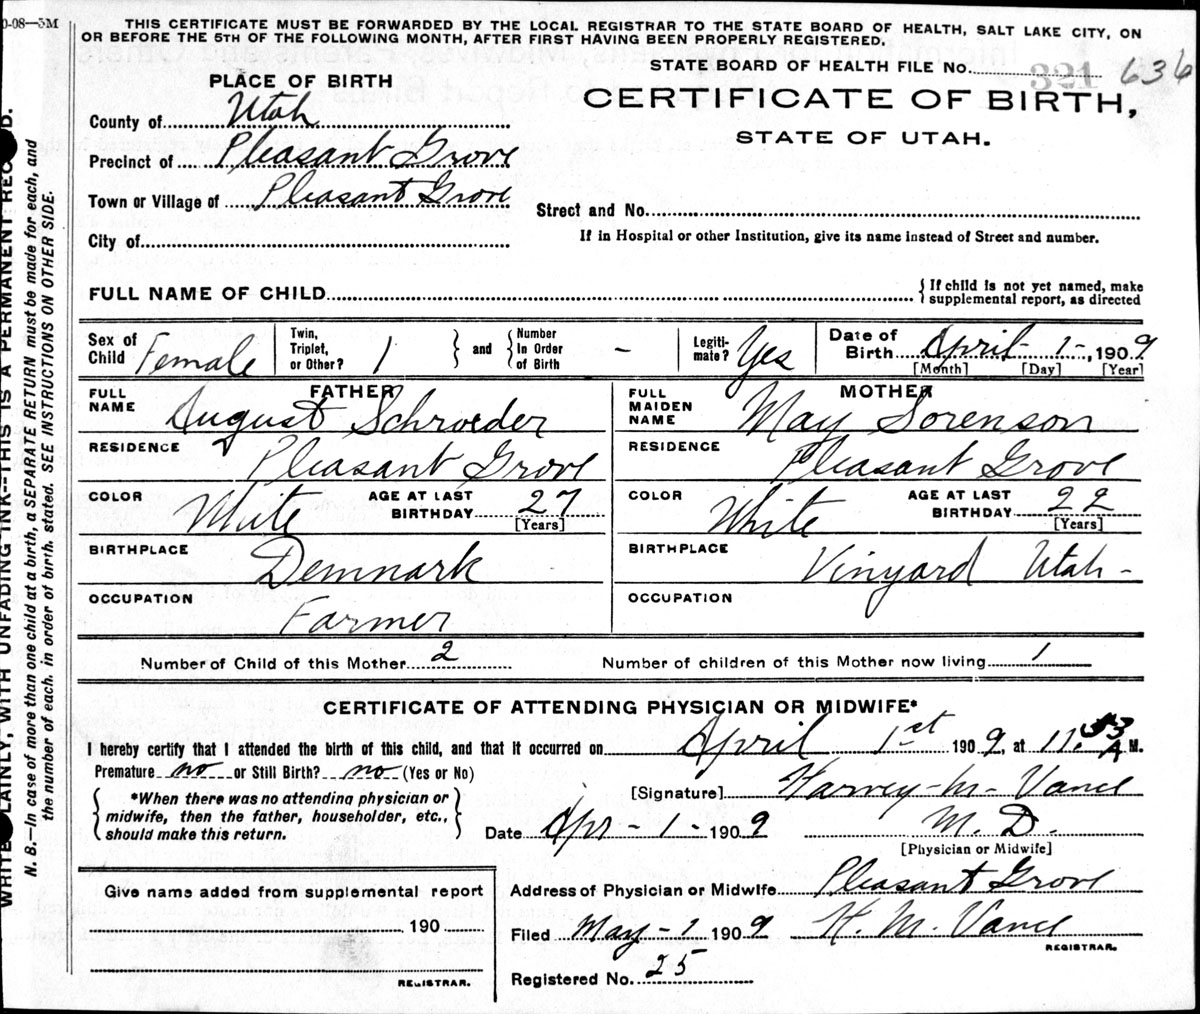 0-08—5M
THIS CERTIFICATE MUST BE FORWARDED BY THE LOCAL REGISTRAR TO THE STATE BOARD OF HEALTH, SALT LAKE CITY, ON
OR BEFORE THE 5TH OF THE FOLLOWING MONTH, AFTER FIRST HAVING BEEN PROPERLY REGISTERED.
STATE BOARD OF HEALTH FILE No. 321 636
PLACE OF BIRTH
CERTIFICATE OF BIRTH,
STATE OF UTAH.
County of Utah
Precinct of Pleasant Grove
Town or Village of Pleasant Grove
Street and No.
City of
If in Hospital or other Institution, give its name instead of Street and number.
FULL NAME OF CHILD
{ If child is not yet named, make
supplemental report, as directed
Sex of Child Female
Twin, Triplet, or Other? 1 } and { Number In Order of Birth –
Legiti-mate? Yes
Date of Birth April - 1 -, 1909
[Month] [Day] [Year]
FATHER
FULL NAME August Schroeder
RESIDENCE Pleasant Grove
COLOR White AGE AT LAST BIRTHDAY 27 [Years]
BIRTHPLACE Demnark
OCCUPATION Farmer
MOTHER
FULL MAIDEN NAME May Sorenson
RESIDENCE Pleasant Grove
COLOR White AGE AT LAST BIRTHDAY 22 [Years]
BIRTHPLACE Vinyard Utah -
OCCUPATION
Number of Child of this Mother 2 Number of children of this Mother now living 1
CERTIFICATE OF ATTENDING PHYSICIAN OR MIDWIFE*
I hereby certify that I attended the birth of this child, and that it occurred on April 1st 1909, at 11.53 A M.
Premature no or Still Birth? no (Yes or No)
{ *When there was no attending physician or
midwife, then the father, householder, etc.,
should make this return. }
[Signature] Harvey M. Vance
Date Apr - 1 - 1909 M. D.
[Physician or Midwife]
Give name added from supplemental report
190
REGISTRAR.
Address of Physician or Midwife Pleasant Grove
Filed May - 1 1909 H. M. Vance
REGISTRAR.
Registered No. 25
LAINLY, WITH UNFADING INK--THIS IS A PERMANENT
N. B.—In case of more than one child at a birth, a SEPARATE RETURN must be made for each, and
the number of each, in order of birth, stated. SEE INSTRUCTIONS ON OTHER SIDE.